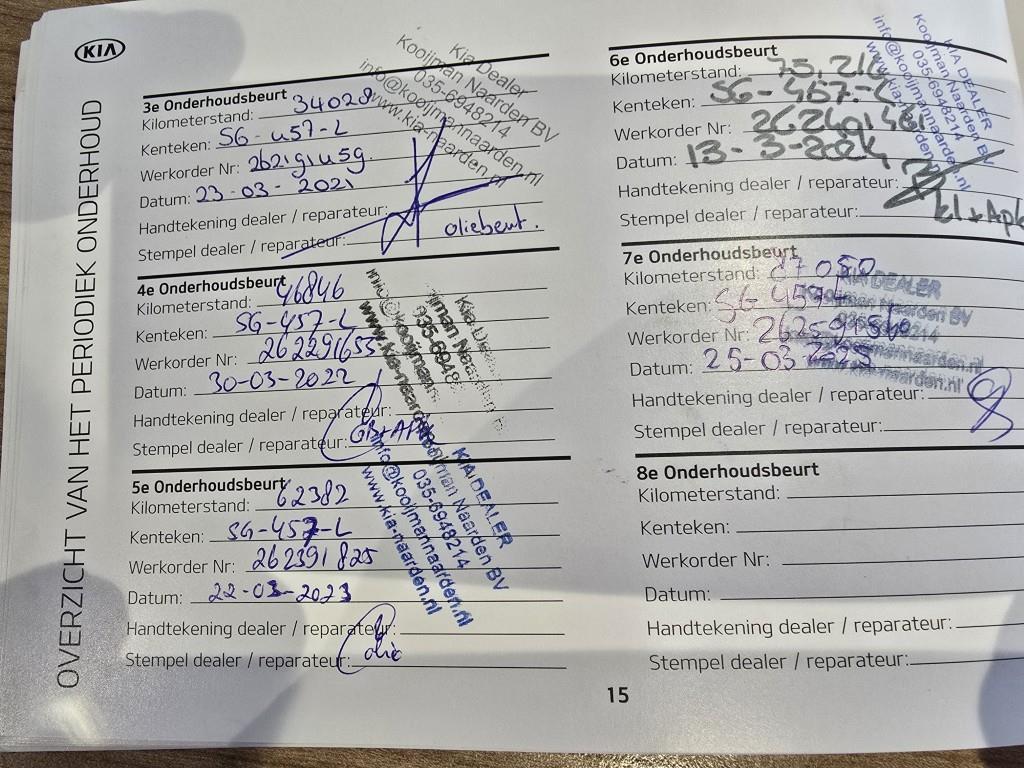 KIA
OVERZICHT VAN HET PERIODIEK ONDERHOUD
3e Onderhoudsbeurt
Kilometerstand: 34028
Kenteken: SG-457-L
Werkorder Nr: 262191459
Datum: 23-03-2021
Handtekening dealer / reparateur:
Stempel dealer / reparateur: oliebeurt.
Kia Dealer
Kooijman Naarden BV
035-6948214
info@kooijmannaarden.nl
www.kia-naarden.nl
4e Onderhoudsbeurt
Kilometerstand: 46846
Kenteken: SG-457-L
Werkorder Nr: 262291655
Datum: 30-03-2022
Handtekening dealer / reparateur:
Stempel dealer / reparateur:
5e Onderhoudsbeurt
Kilometerstand: 62382
Kenteken: SG-457-L
Werkorder Nr: 262391825
Datum: 22-03-2023
Handtekening dealer / reparateur:
Stempel dealer / reparateur: olie
KIA DEALER
Kooijman Naarden BV
035-6948214
info@kooijmannaarden.nl
www.kia-naarden.nl
6e Onderhoudsbeurt
Kilometerstand:
Kenteken: SG-457-L
Werkorder Nr:
Datum: 13-3-2024
Handtekening dealer / reparateur:
Stempel dealer / reparateur: kl+Apk
KIA DEALER
Kooijman Naarden BV
035-6948214
info@kooijmannaarden.nl
www.kia-naarden.nl
7e Onderhoudsbeurt
Kilometerstand: 87050
Kenteken: SG-457-L
Werkorder Nr:
Datum: 25-03-2025
Handtekening dealer / reparateur:
Stempel dealer / reparateur:
KIA DEALER
Kooijman Naarden BV
035-6948214
info@kooijmannaarden.nl
www.kia-naarden.nl
8e Onderhoudsbeurt
Kilometerstand:
Kenteken:
Werkorder Nr:
Datum:
Handtekening dealer / reparateur:
Stempel dealer / reparateur:
15